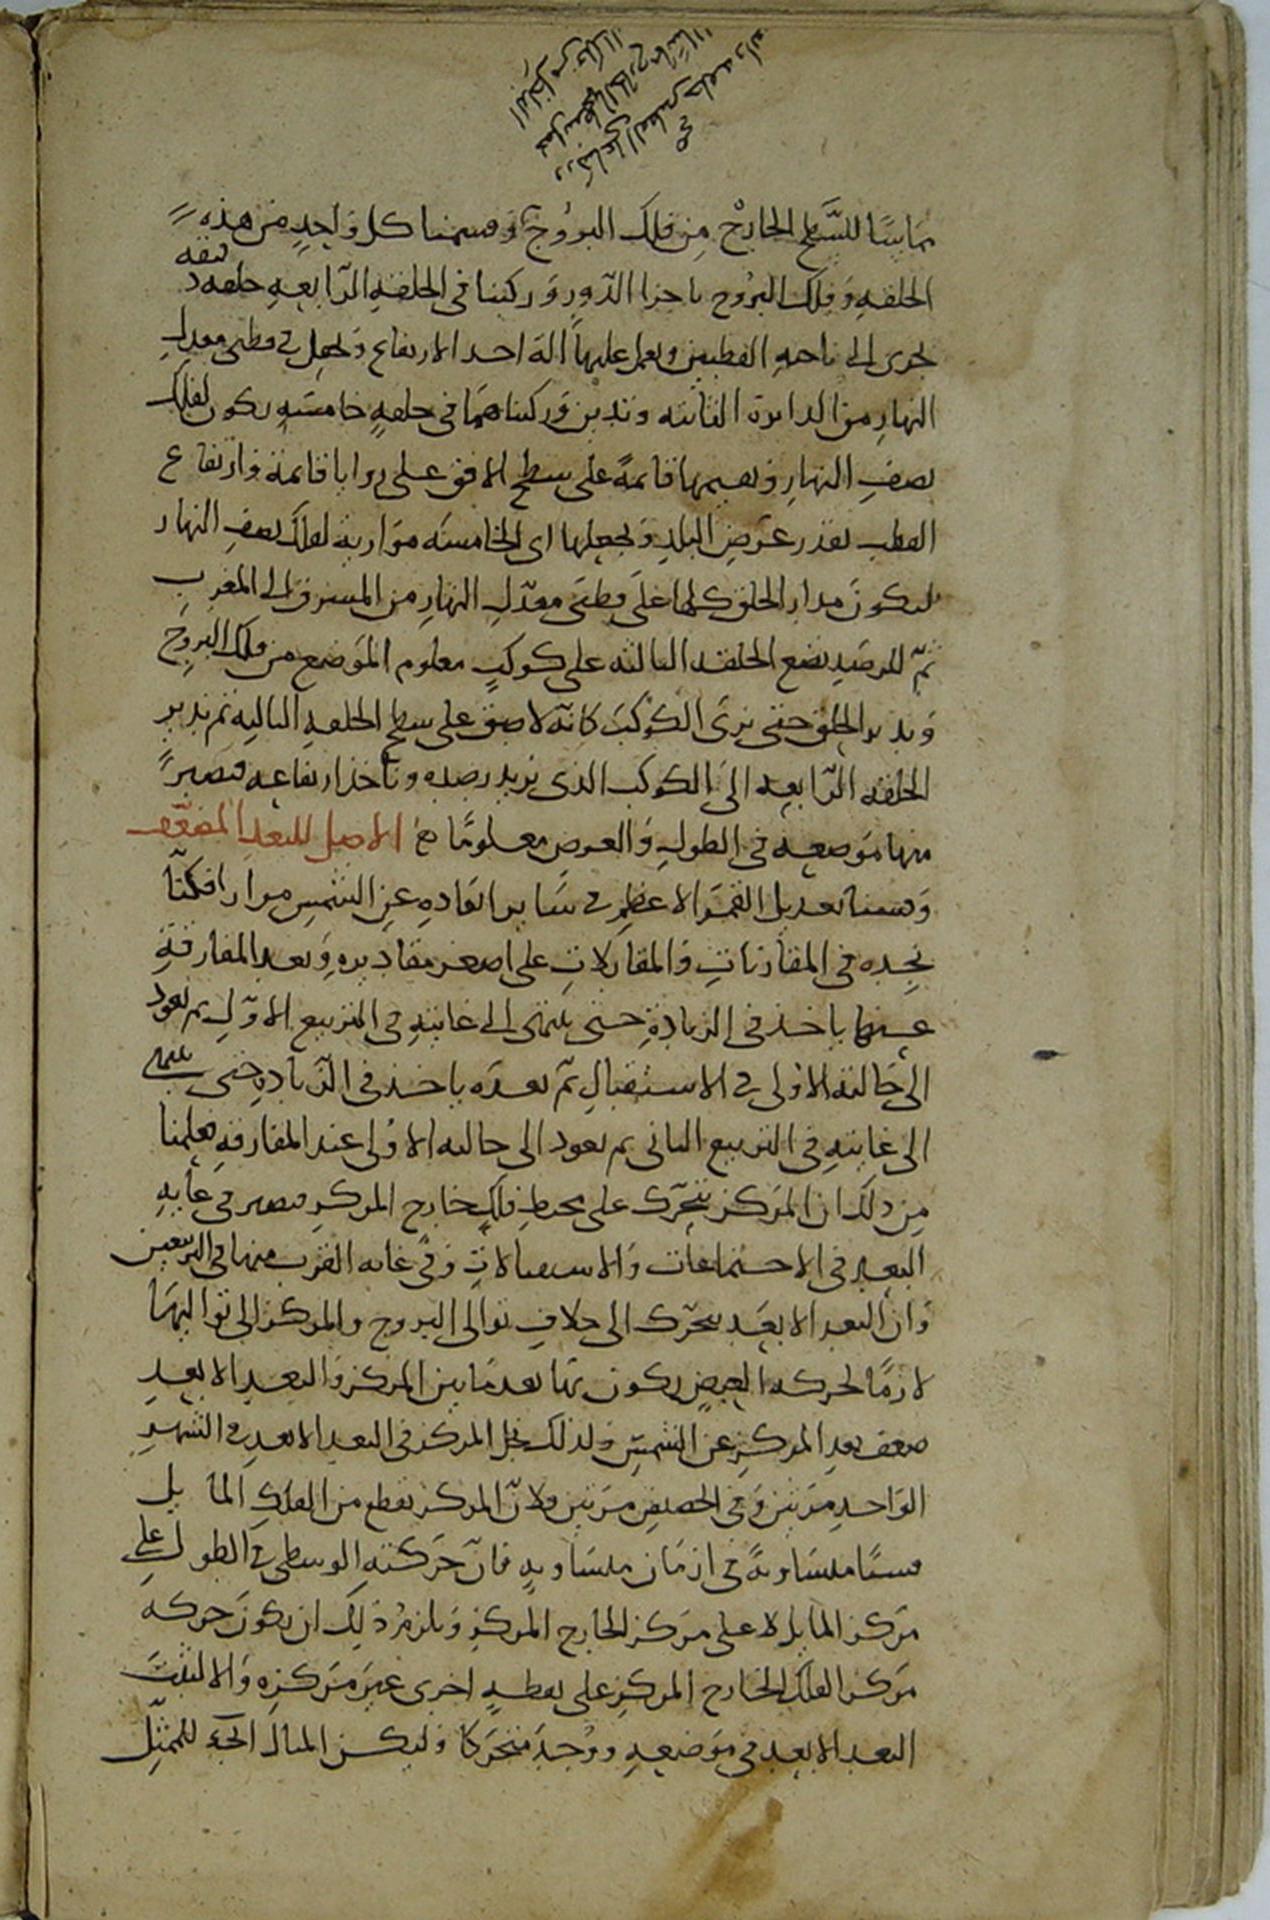 مماسا للسَّطح الخارج من فلك البروج وقسمنا كل واحدٍ من هذه
الحلقه وفلك البروج باجزا الدّور وركبنا فى الحلقه الرّابعه حلقه دقيقه
تجرى الى ناحيه القطبين ونعمل عليها الة اخذ الارتفاع ونجعل فى قطبى معدل
النهار من الدايرة الثانيه وتدين وركبناهما فى حلقهٍ خامسَهٍ يكون لفلك
نصف النهار ونقيمها قايمة على سطح الافق على زوايا قايمة وارتفاع
القطب بقدر عرض البلد ونجعلها اى الخامسه موازية لفلك نصف النهار
ليكون مدار الحلق كلها على قطبى معدّل النهار من المشرق الى المغرب
ثمّ للرصد نضع الحلقه الثالثه على كوكبٍ معلوم الموضع من فلك البروج
وندير الحلق حتى نرى الكوكب كانّه لاصق على سطح الحلقه الثاليه ثم ندير
الحلقه الرّابعه الى الكوكب الذى نريد رصده وناخذ ارتفاعه فنصير
منها موضعه فى الطول والعرض معلومًا الاصل للبعد المضعّف
وقسنا تعديل القمر الاعظم فى ساير ابعاده عن الشمس مرارا فكنّا
نجده فى المقارنات والمقابلات على اصغر مقاديره وبعد المفارقة
عنها ياخذ فى الزيادة حتى ينتهى الى غايته فى التربيع الاوّل ثم يعود
الى حالته الاولى فى الاستقبال ثمّ بعده ياخذ فى الزّياده حتى ينتهى
الى غايته فى التربيع الثانى ثم يعود الى حالته الاولى عند المقارنه فعلمنا
من ذلك ان المركز يتحرّك على محيط فلك خارج المركز فيصير فى غايه
البعد فى الاجتماعات والاستقبالات وفى غايه القرب منها فى التربيعين
وان البعد الابعد يتحرّك الى خلاف توالى البروج والمركز الى تواليها
لازمًا لحركه العرض يكون بها بعد ما بين المركز والبعد الابعد
ضعف بعد المركز عن الشمس ولذلك يحل المركز فى البعد الابعد فى الشهر
الواحد مرتين وفى الحضيض مرتين ولانّ المركز يقطع من الفلك المايل
قسيًا متساويةً فى ازمان متساويه فانّ حركته الوسطى فى الطول على
مركز المايل لا على مركز الخارج المركز ويلزم ذلك ان يكون حركه
مركز الفلك الخارج المركز على نقطهٍ اخرى غير مركزه والا لثبت
البعد الابعد فى موضعه ووجد متحركا وليكن المثال للممثّل